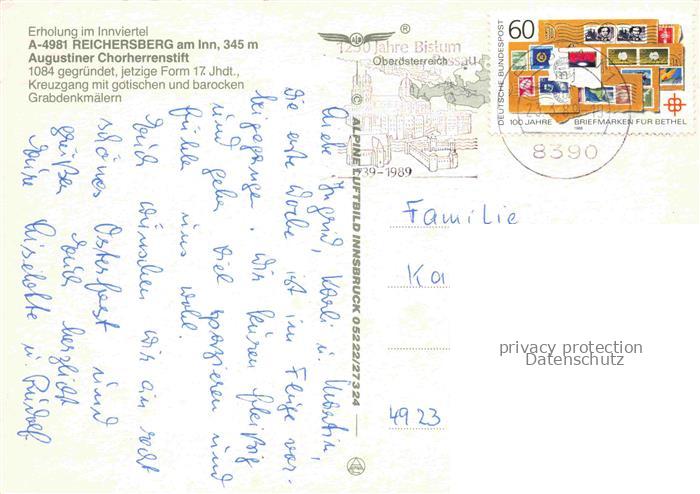 Erholung im Innviertel
A-4981 REICHERSBERG am Inn, 345 m
Augustiner Chorherrenstift
1084 gegründet, jetzige Form 17. Jhdt.,
Kreuzgang mit gotischen und barocken
Grabdenkmälern
®
1250 Jahre Bistum
Passau
Oberösterreich
739-1989
DEUTSCHE BUNDESPOST
60
100 JAHRE BRIEFMARKEN FÜR BETHEL
1988
8390
© ALPINE LUFTBILD INNSBRUCK 05222/27324
Liebe Ingrid, Karli u. Martin,
die erste Woche ist im Fluge vor-
beigegangen. Wir kuren fleißig
und gehen viel spazieren und
fühlen uns wohl.
Euch wünschen wir ein recht
schönes Osterfest und
grüßen Euch herzlich
Eure Liselotte u. Rudolf
Familie
Ka
4923
privacy protection
Datenschutz